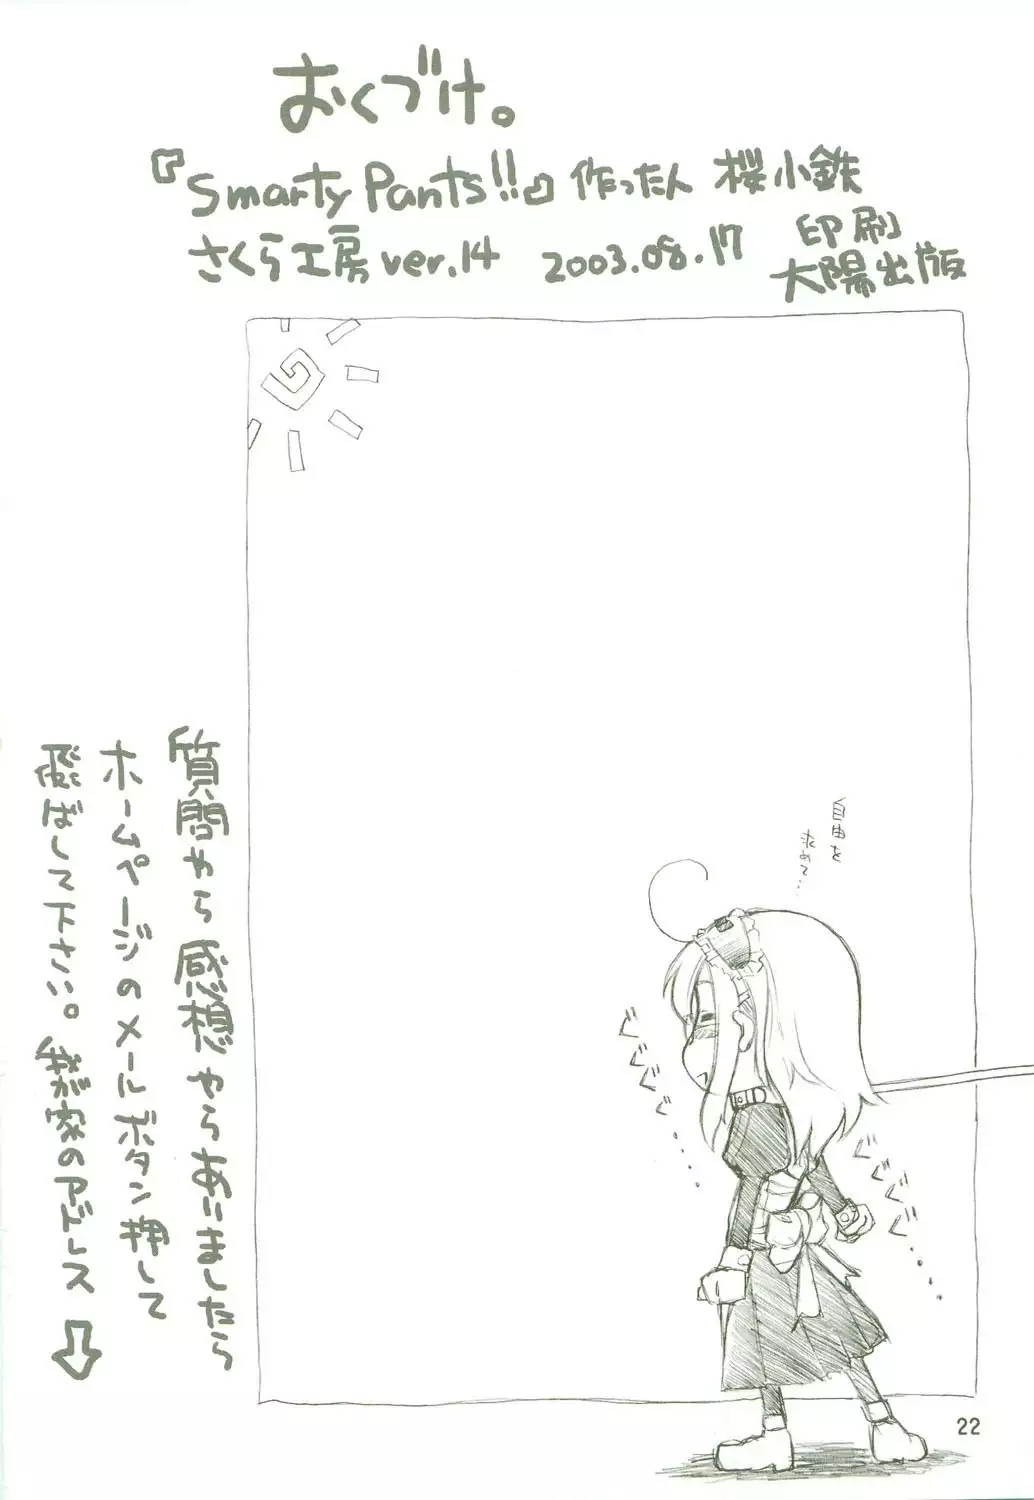 おくづけ。
『Smarty Pants!!』作ったん 桜小鉄
さくら工房 ver.14 2003.08.17 印刷
大陽出版
質問やら感想やらありましたら
ホームページのメールボタン押して
飛ばして下さい。我が家のアドレス⇩
自由を
求めて…
ぐぐぐぐ・・・・
ぐぐぐぐ・・・・
22